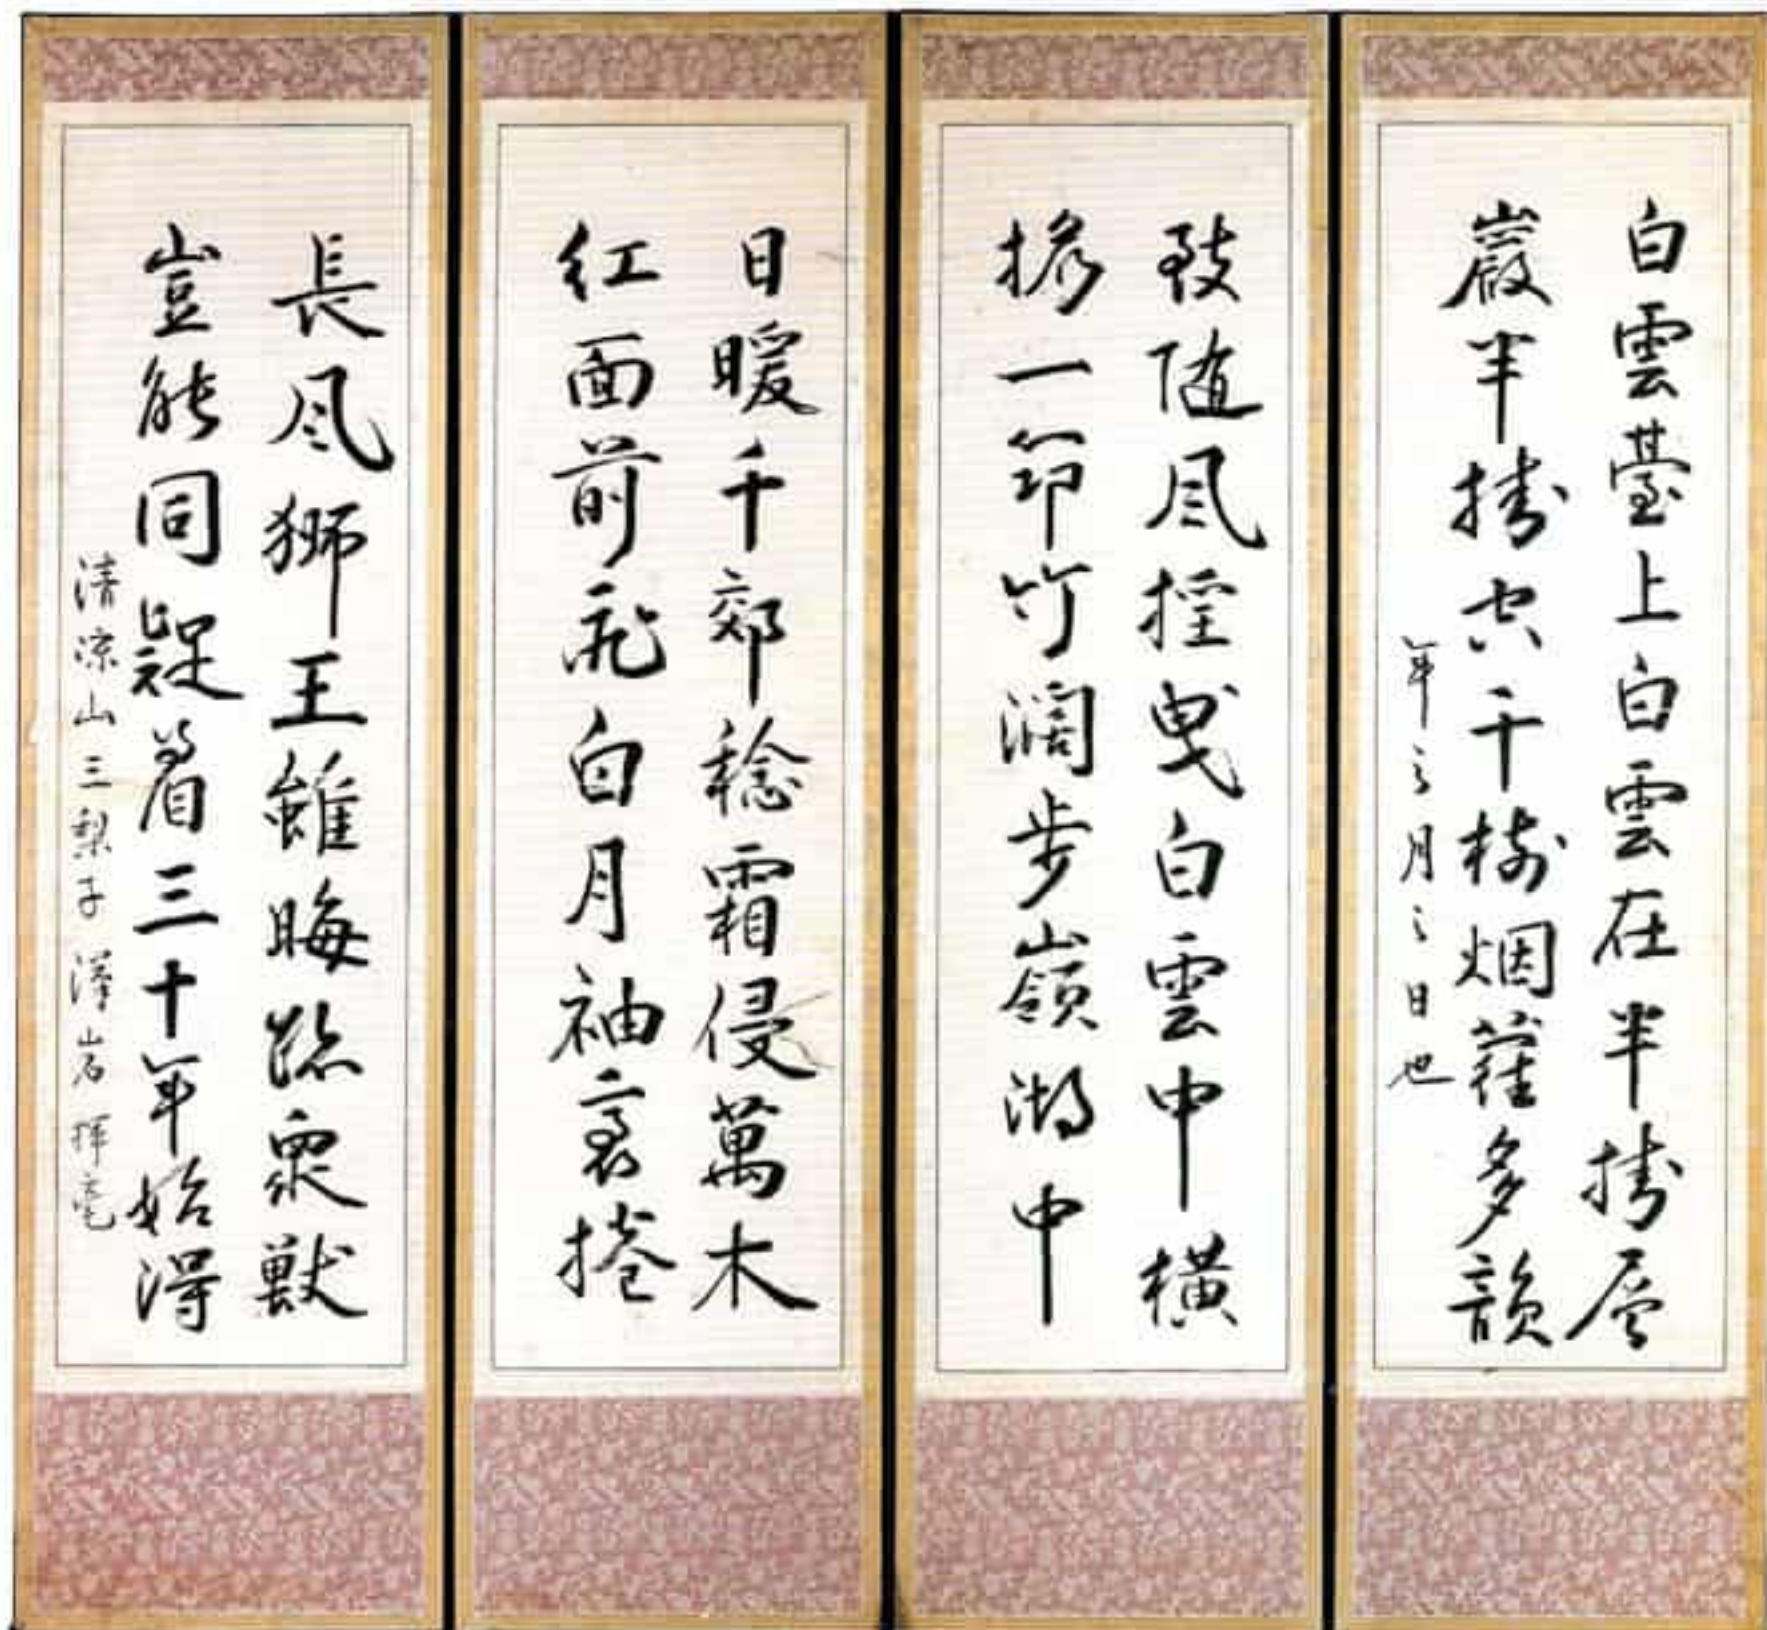 白雲臺上白雲在半掛層
巖半掛空千樹烟蘿多韻
年之月之日也
致隨風控曳白雲中橫
一筇竹濶步嶺湖中
日暖千郊稔霜侵萬木
紅面前飛白月袖裏捲
長風獅王雖晦跡衆獸
豈能同着三十年始得
清凉山三梨子 澤岩揮毫